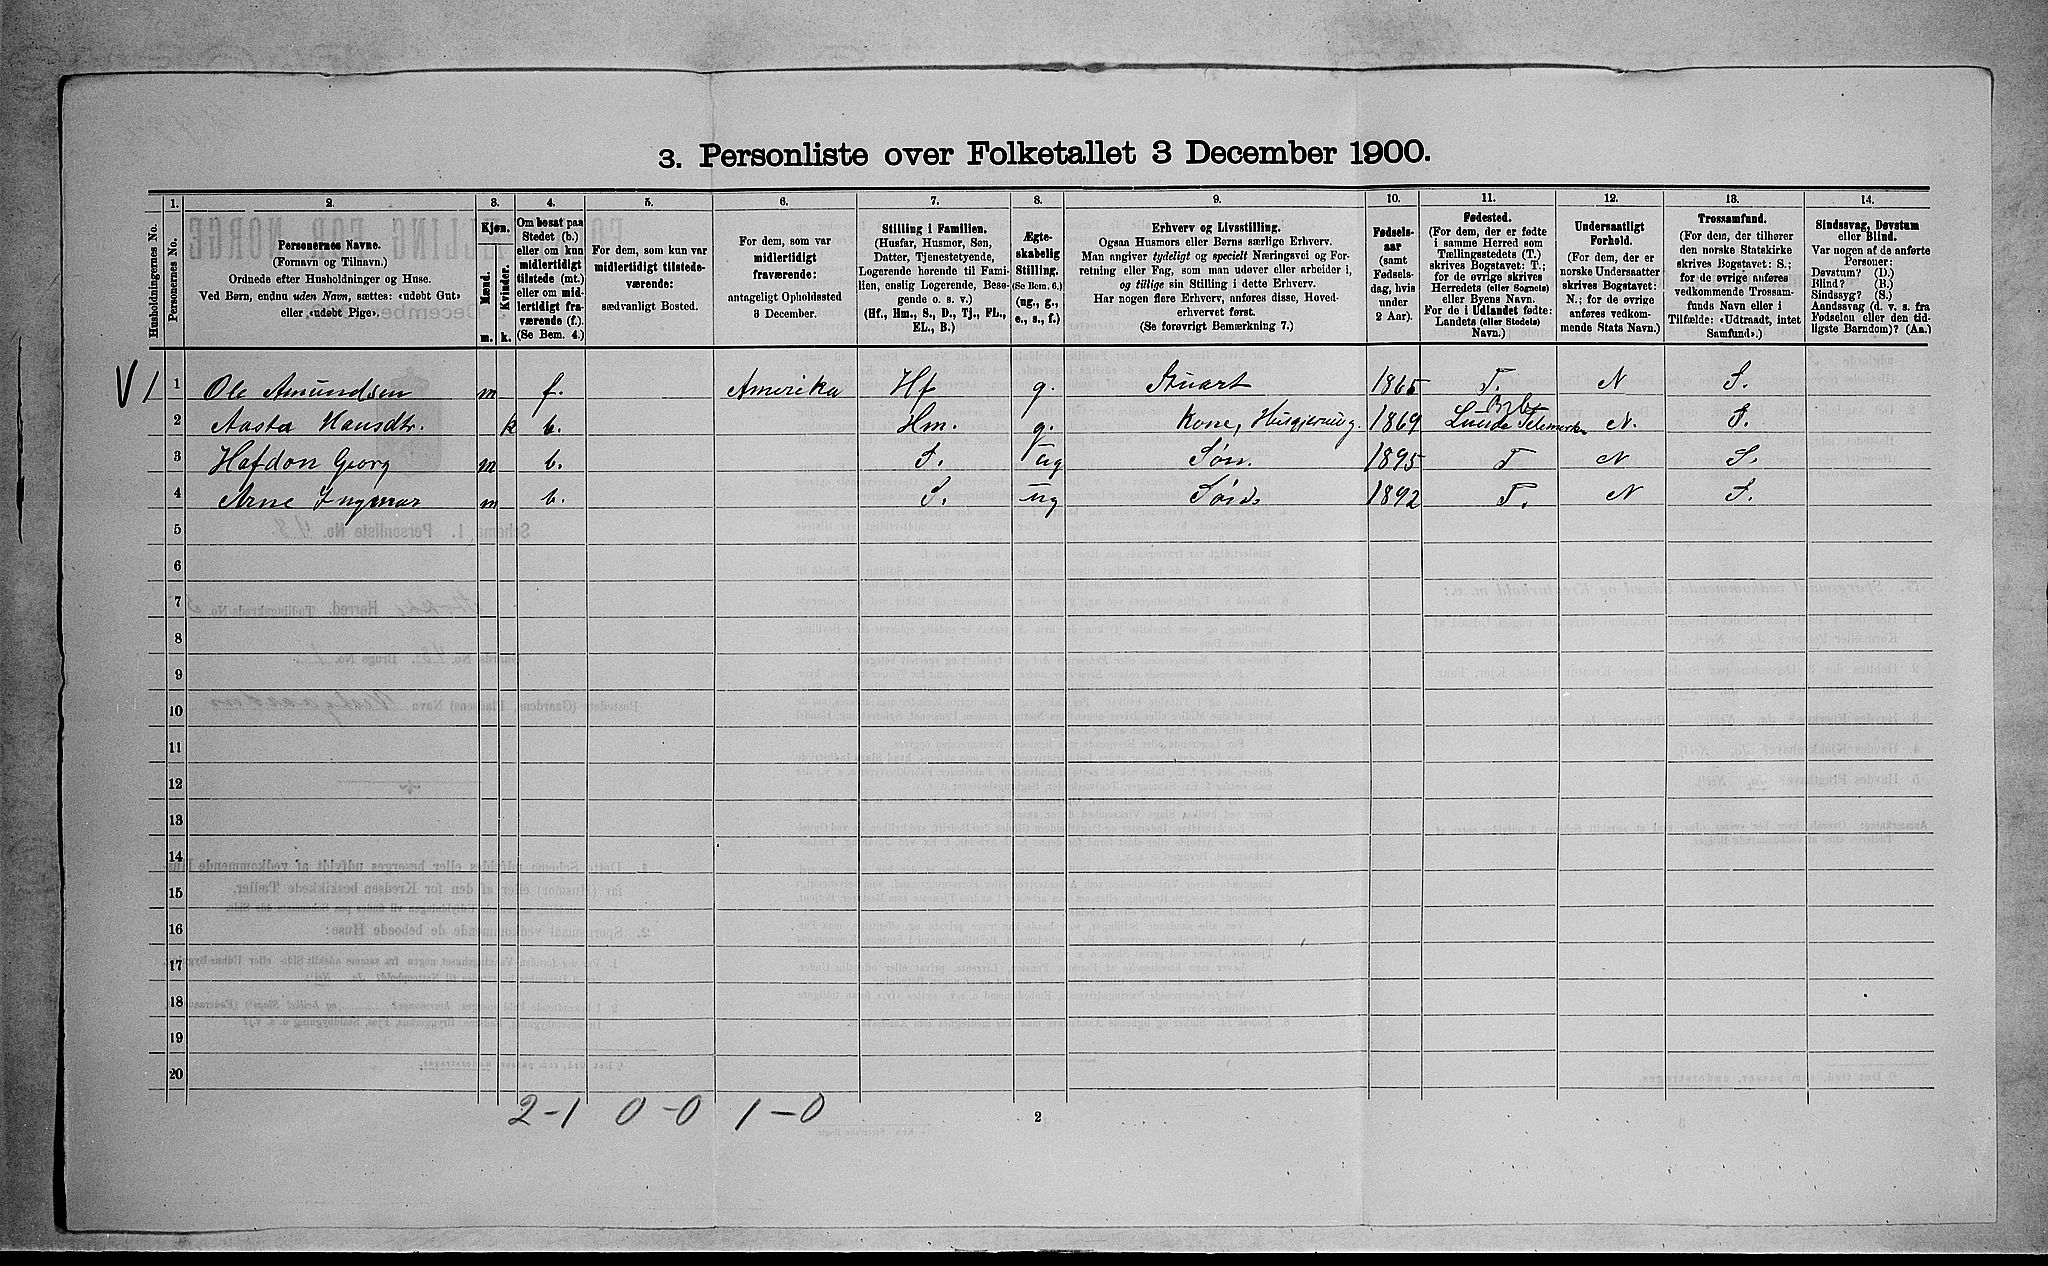 3. Personliste over Folketallet 3 December 1900.
1. 2. 3. 4. 5. 6. 7. 8. 9. 10. 11. 12. 13. 14.
Husholdningernes No.
Personernes No.
Personernes Navne.
(Fornavn og Tilnavn.)
Ordnede efter Husholdninger og Huse.
Ved Børn, endnu uden Navn, sættes: «udøbt Gut»
eller «udøbt Pige».
Kjøn.
Mænd.
Kvinder.
m. k.
Om bosat paa
Stedet (b.)
eller om kun
midlertidigt
tilstede (mt.)
eller om mid-
lertidigt fra-
værende (f.).
(Se Bem. 4.)
For dem, som kun var
midlertidigt tilstede-
værende:
sædvanligt Bosted.
For dem, som var
midlertidigt
fraværende:
antageligt Opholdssted
3 December.
Stilling i Familien.
(Husfar, Husmor, Søn,
Datter, Tjenestetyende,
Logerende hørende til Fami-
lien, enslig Logerende, Besø-
gende o. s. v.)
(Hf., Hm., S., D., Tj., FL.,
EL., B.)
Ægte-
skabelig
Stilling.
(Se Bem. 6.)
(ug., g.,
e., s., f.)
Erhverv og Livsstilling.
Ogsaa Husmors eller Børns særlige Erhverv.
Man angiver tydeligt og specielt Næringsvei og For-
retning eller Fag, som man udøver eller arbeider i,
og tillige sin Stilling i dette Erhverv.
Har nogen flere Erhverv, anføres disse, Hoved-
erhvervet først.
(Se forøvrigt Bemærkning 7.)
Fødsels-
aar
(samt
Fødsels-
dag, hvis
under
2 Aar).
Fødested.
(For dem, der er fødte
i samme Herred som
Tællingsstedets (T.)
skrives Bogstavet: T.;
for de øvrige skrives
Herredets (eller Sognets)
eller Byens Navn.
For de i Udlandet fødte:
Landets (eller Stedets)
Navn.)
Undersaatligt
Forhold.
(For dem, der er
norske Undersaatter
skrives Bogstavet:
N.; for de øvrige
anføres vedkom-
mende Stats Navn.)
Trossamfund.
(For dem, der tilhører
den norske Statskirke
skrives Bogstavet: S.;
for de øvrige anføres
vedkommende Trossam-
funds Navn eller i
Tilfælde: «Udtraadt, intet
Samfund».)
Sindssvag, Døvstum
eller Blind.
Var nogen af de anførte
Personer:
Døvstum? (D.)
Blind? (B.)
Sindssyg? (S.)
Aandssvag (d. v. s. fra
Fødselen eller den tid-
ligste Barndom)? (Aa.)
V 1 1 Ole Amundsen m f. Amerika Hf g. Stuart 1865 T. N S.
2 Aasta Hansdtr. k b. Hm. g. Kone, Husgjerning. 1869 Lunde Telemarken N. S.
3 Hafdon Georg m b. S. ug Søn. 1895 T N S.
4 Arne Ingmar m b. S. ug 1892 T. N S.
5
6
7
8
9
10
11
12
13
14
15
16
17
18
19
20
2-1 0-0 1-0
2